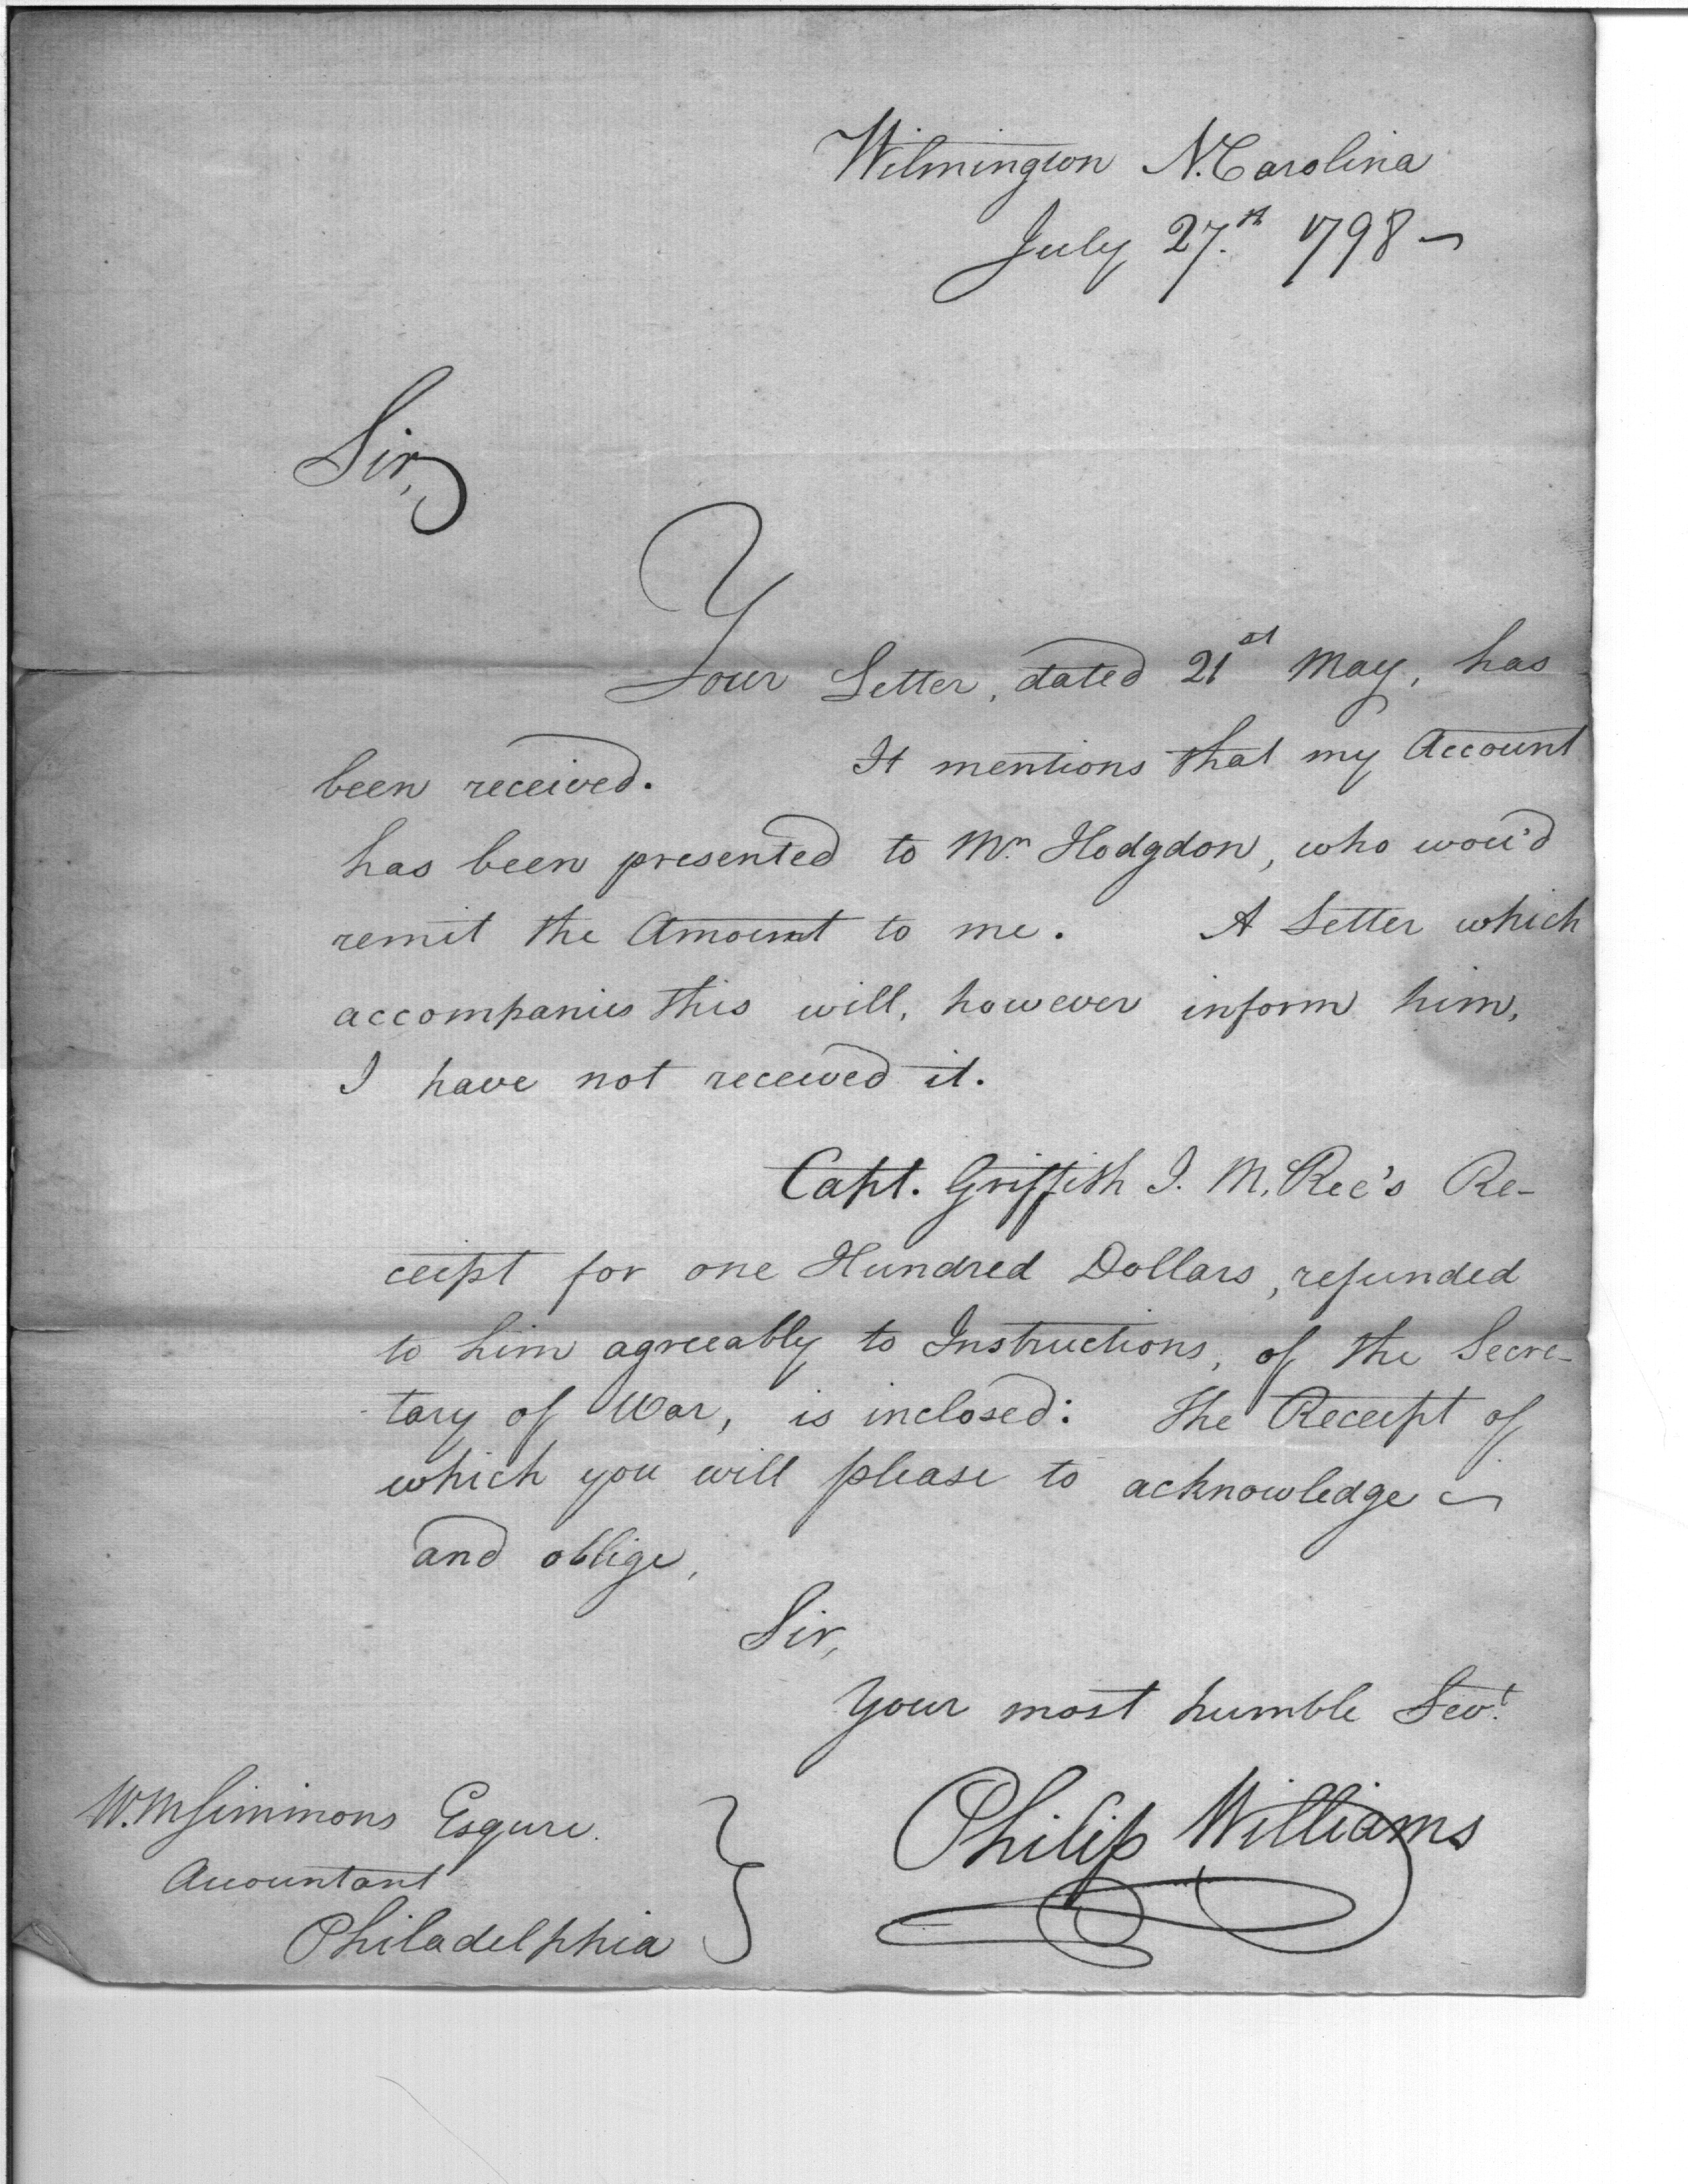 Wilmington N. Carolina
July 27.th 1798
Sir,
Your Letter, dated 21st May, has
been received. It mentions that my Account
has been presented to Mr. Hodgdon, who wou'd
remit the Amount to me. A Letter which
accompanies this will, however inform him,
I have not received it.
Capt. Griffith J. McRee's Re-
ceipt for one Hundred Dollars, refunded
to him agreeably to Instructions, of the Secre-
tary of War, is inclosed: The Receipt of
which you will please to acknowledge
and oblige,
Sir,
Your most humble Servt.
Philip Williams
Wm Simmons Esqure.
Accountant
Philadelphia